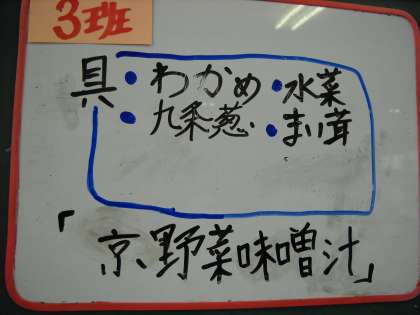 3班
具
・わかめ ・水菜
・九条葱 ・まい茸
「京野菜味噌汁」